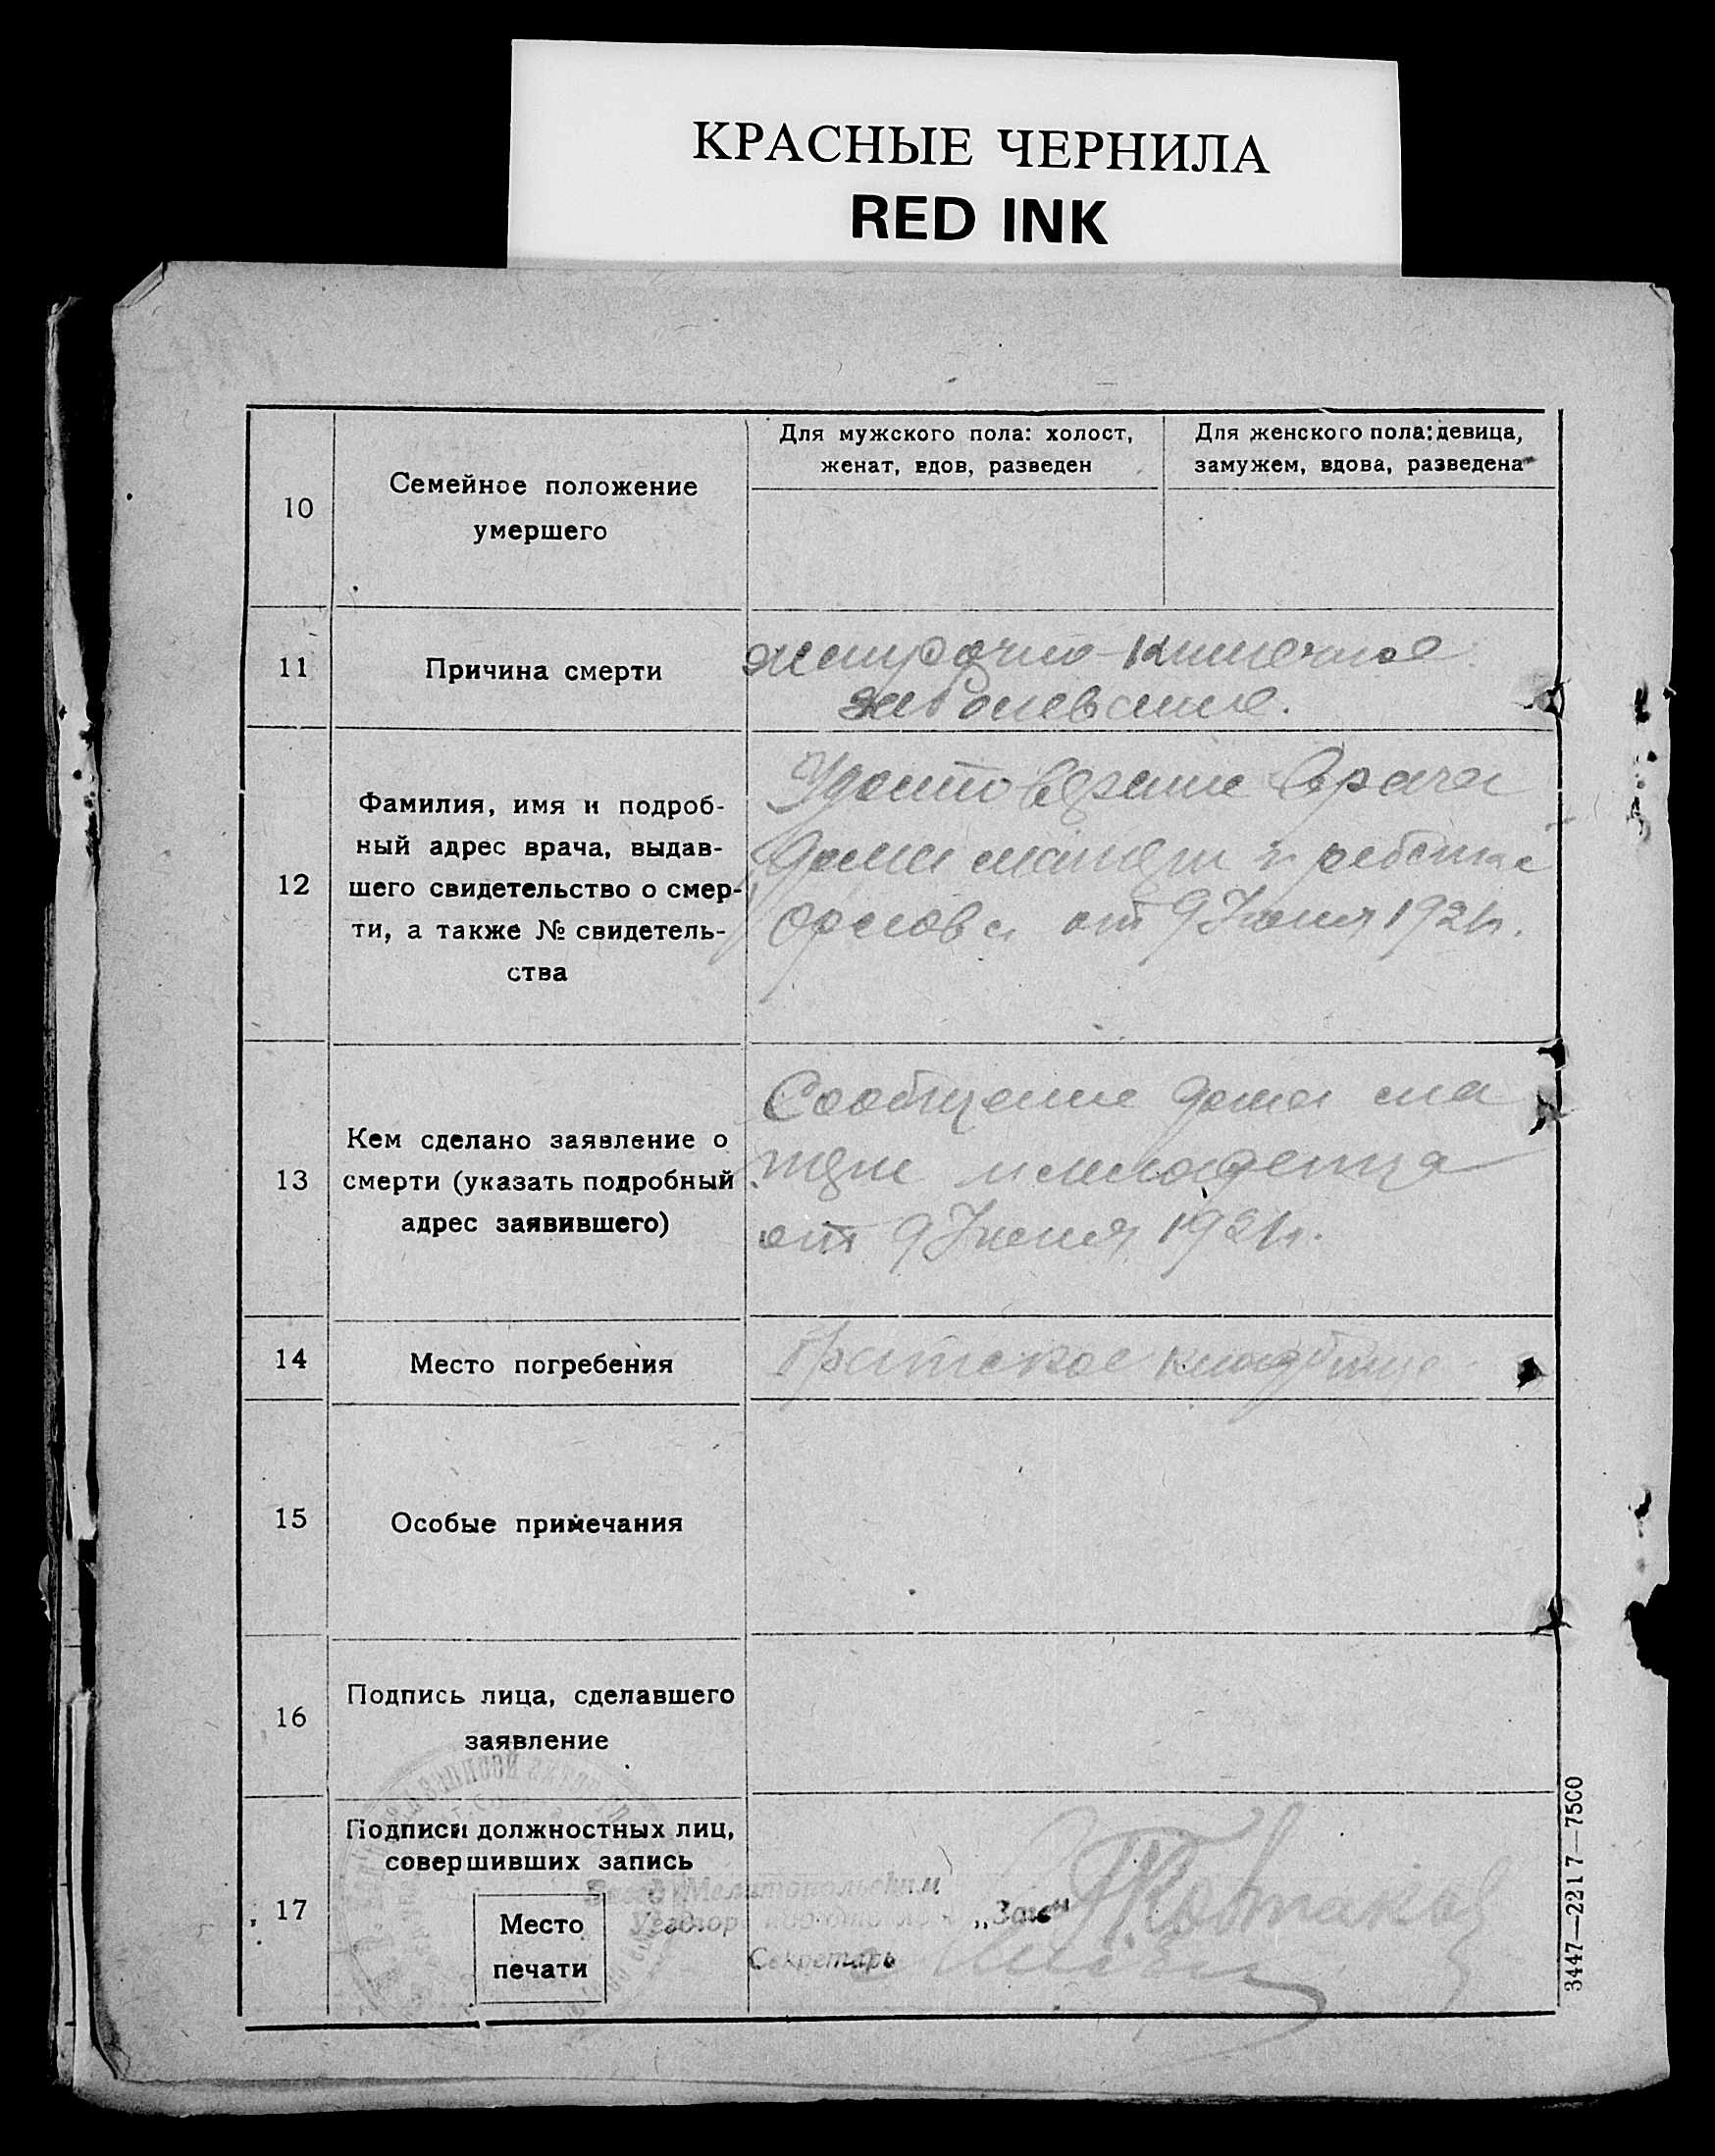 КРАСНЫЕ ЧЕРНИЛА
RED INK
10
Семейное положение
умершего
Для мужского пола: холост,
женат, вдов, разведен
Для женского пола: девица,
замужем, вдова, разведена
11
Причина смерти
желудочно-кишечное
заболевание.
12
Фамилия, имя и подроб-
ный адрес врача, выдав-
шего свидетельство о смер-
ти, а также № свидетель-
ства
Удостоверение врача
Дома матери и ребенка
от 9 Июня 192
13
Кем сделано заявление о
смерти (указать подробный
адрес заявившего)
Сообщение дома ма
тери и младенца
от 9 Июня 192
14
Место погребения
Братское кладбище
15
Особые примечания
16
Подпись лица, сделавшего
заявление
17
Подписи должностных лиц,
совершивших запись
Место
печати
Мелитопольским
„Загс"
Секретарь
3447—2217—7500